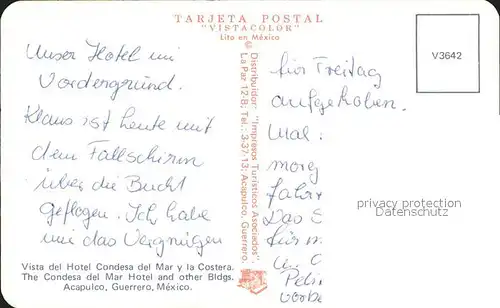 TARJETA POSTAL
"VISTACOLOR"
Lito en México
V3642
Unser Hotel im
Vordergrund.
Klaus ist heute mit
dem Fallschirm
über die Bucht
geflogen. Ich habe
mir das Vergnügen
Distribuidor: "Impresos Turísticos Asociados".
La Paz 12-B. Tel.: 3-37-13; Acapulco, Guerrero.
für Freitag
aufgehoben.
Mal
morg
fahr
Das S
für m
u. C
Peli
vorbe
privacy protection
Datenschutz
Vista del Hotel Condesa del Mar y la Costera.
The Condesa del Mar Hotel and other Bldgs.
Acapulco, Guerrero, México.